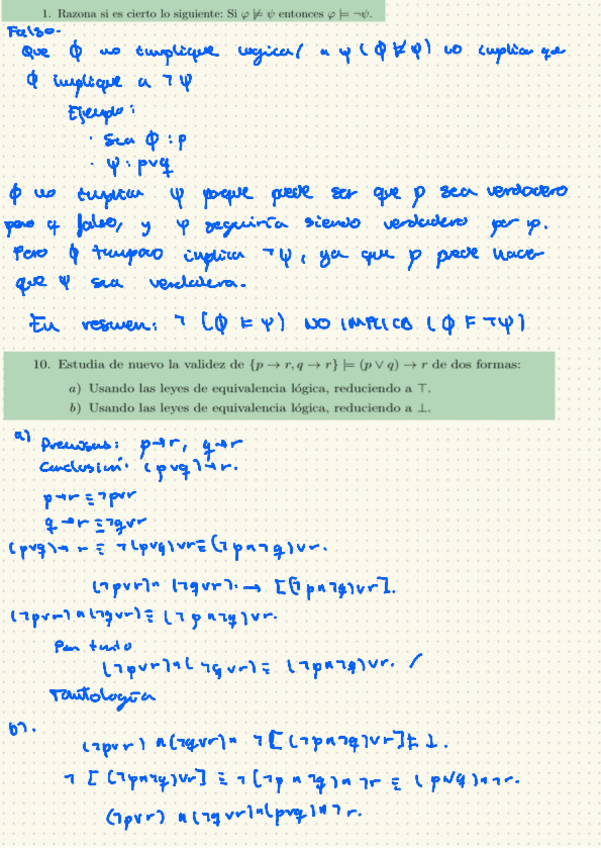 1. Razona si es cierto lo siguiente: Si φ ⊭ ψ entonces φ ⊨ ¬ψ.
Falso.
Que ϕ no implique logica/ a ψ (ϕ ⊭ ψ) no implica que
ϕ implique a ¬ψ
Ejemplo:
· Sea ϕ : p
· ψ : p∨q
ϕ no implica ψ porque puede ser que p sea verdadero
pero q falso, y ψ seguiría siendo verdadero por p.
Pero ϕ tampoco implica ¬ψ, ya que p puede hacer
que ψ sea verdadera.
En resumen: ¬(ϕ ⊨ ψ) NO IMPLICA (ϕ ⊨ ¬ψ)
10. Estudia de nuevo la validez de {p → r, q → r} ⊨ (p ∨ q) → r de dos formas:
a) Usando las leyes de equivalencia lógica, reduciendo a ⊤.
b) Usando las leyes de equivalencia lógica, reduciendo a ⊥.
a) Premisas: p→r, q→r
Conclusión: (p∨q)→r.
p→r ≡ ¬p∨r
q→r ≡ ¬q∨r
(p∨q)→r ≡ ¬(p∨q)∨r ≡ (¬p∧¬q)∨r.
(¬p∨r)∧(¬q∨r). → [(¬p∧¬q)∨r].
(¬p∨r)∧(¬q∨r) ≡ (¬p∧¬q)∨r.
Por tanto
(¬p∨r)∧(¬q∨r) ≡ (¬p∧¬q)∨r. /
Tautología
b).
(¬p∨r)∧(¬q∨r)∧ ¬[(¬p∧¬q)∨r] ⊨ ⊥.
¬[(¬p∧¬q)∨r] ≡ ¬(¬p∧¬q)∧¬r ≡ (p∨q)∧¬r.
(¬p∨r)∧(¬q∨r)∧(p∨q)∧¬r.